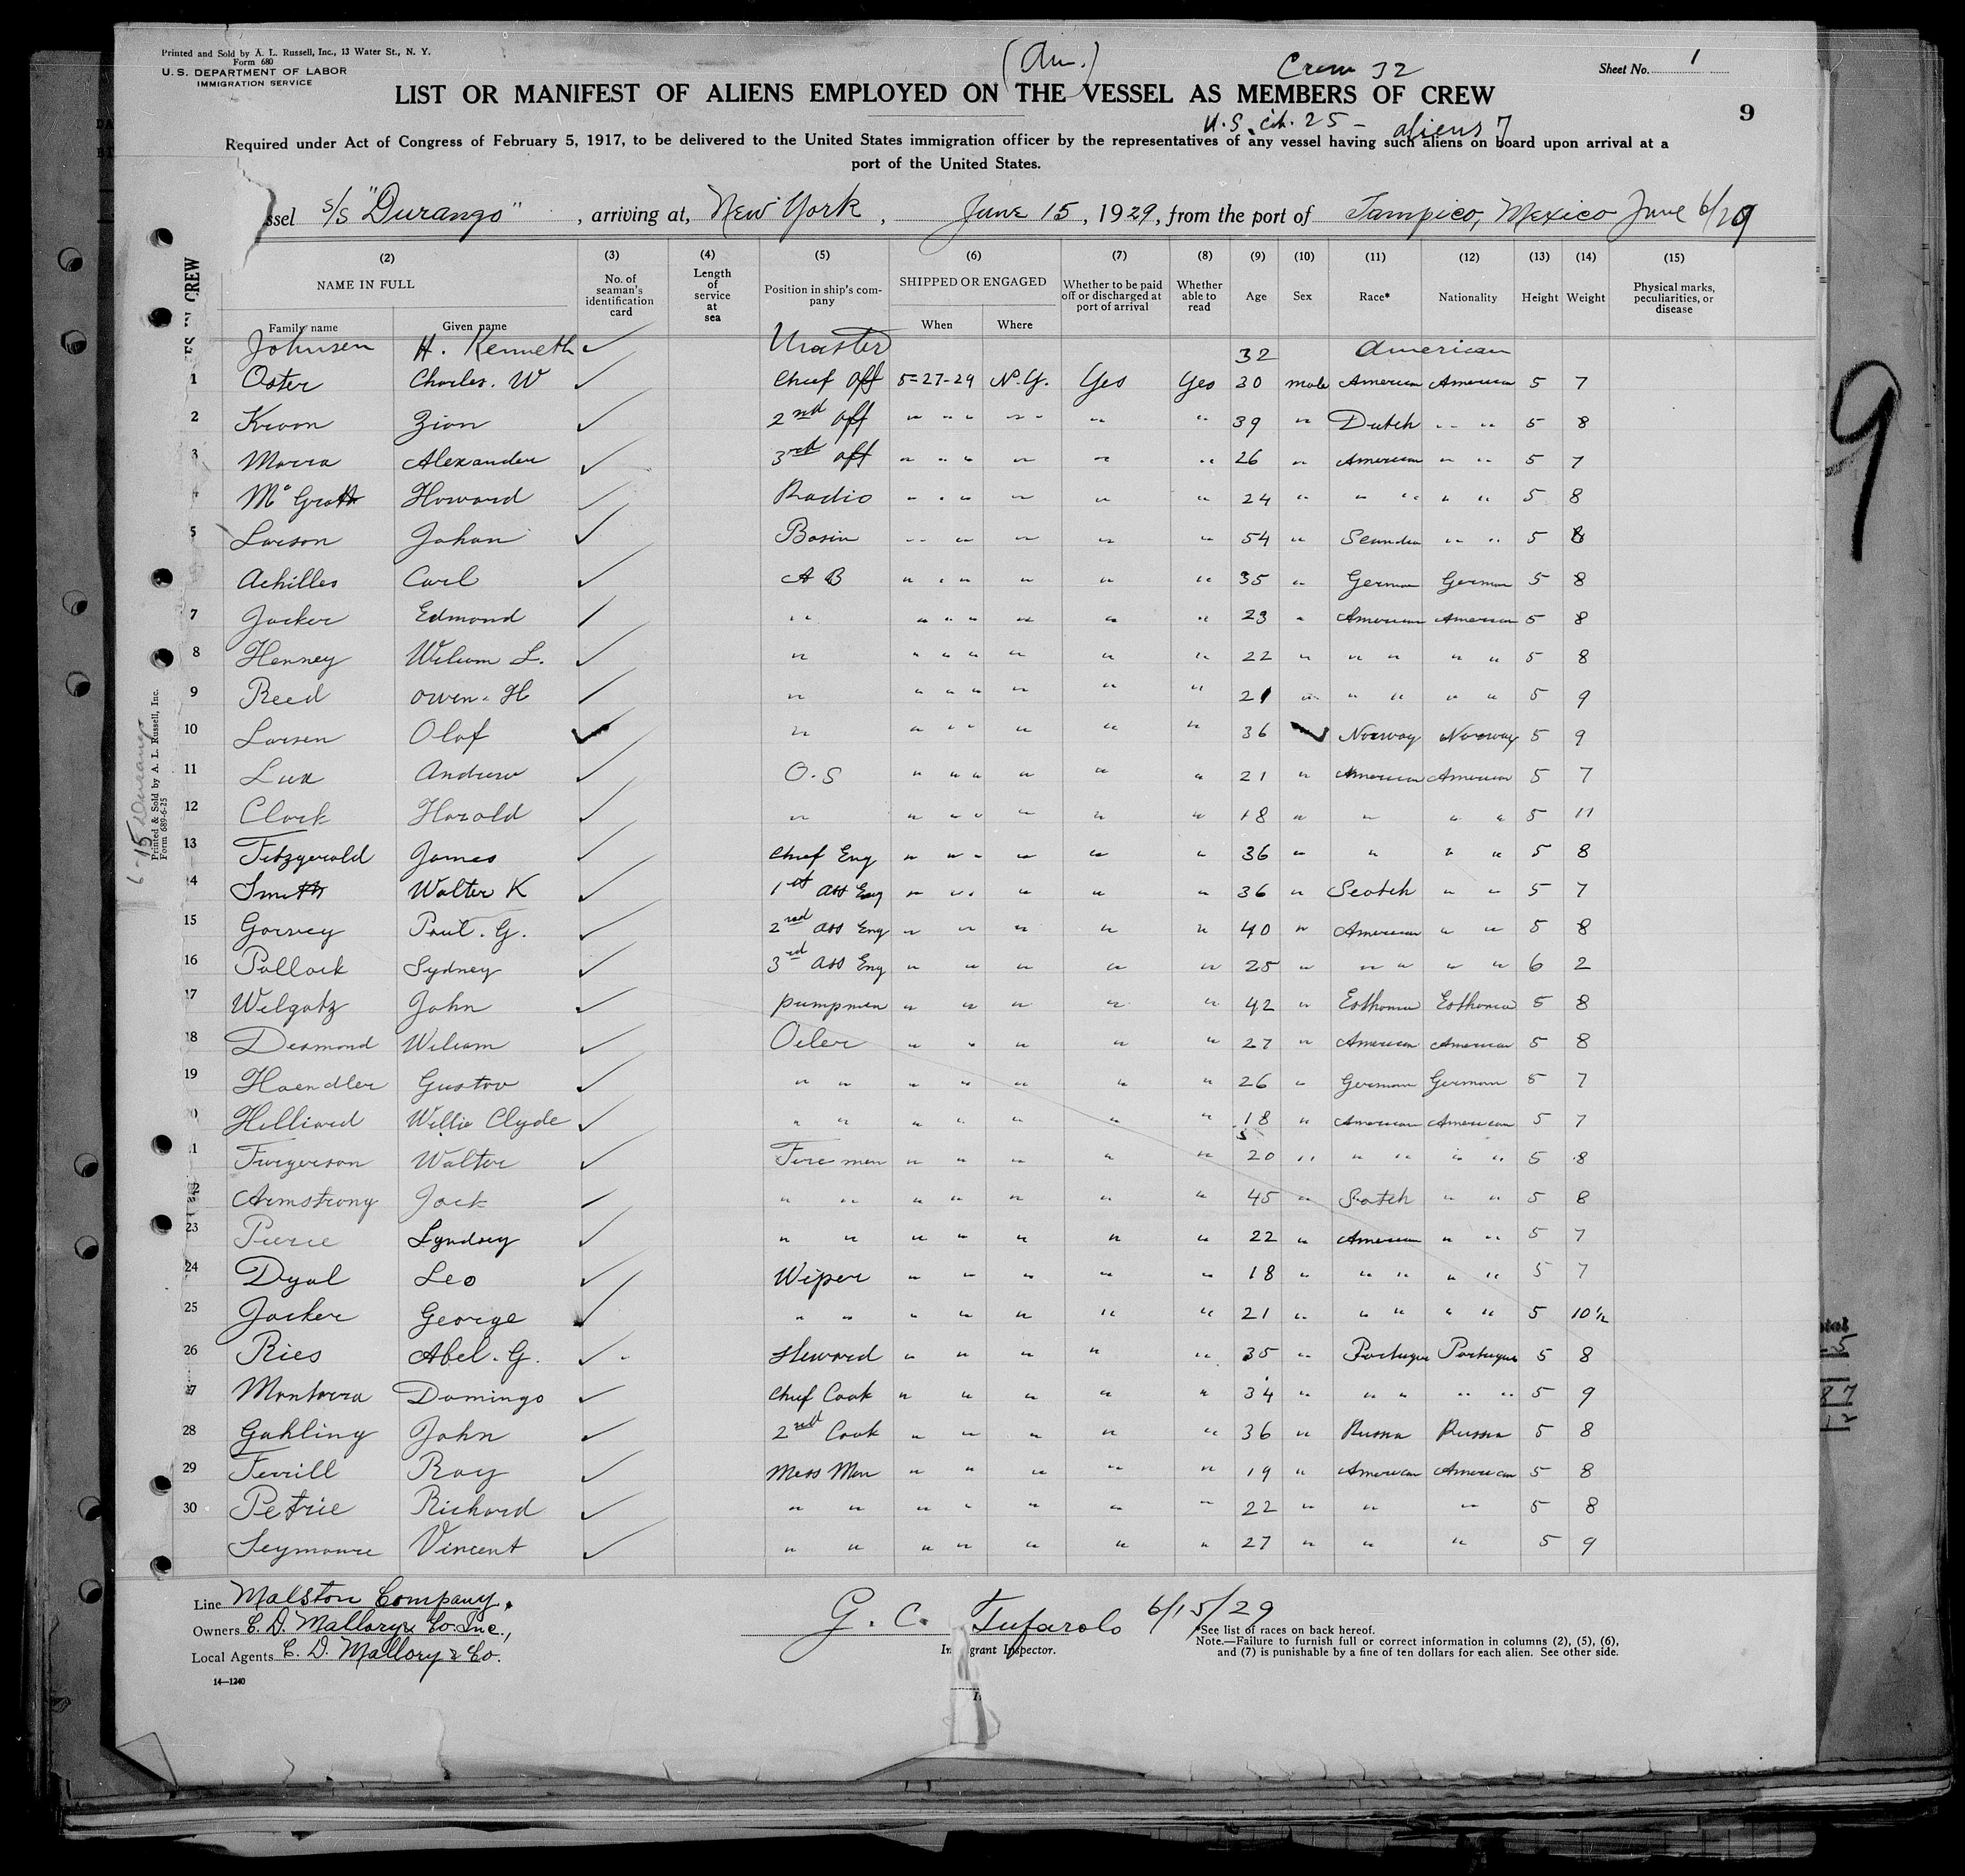 Printed and Sold by A. L. Russell, Inc., 13 Water St., N. Y.
Form 680
U. S. DEPARTMENT OF LABOR
IMMIGRATION SERVICE
(Am.)
Crew 32
Sheet No. 1
LIST OR MANIFEST OF ALIENS EMPLOYED ON THE VESSEL AS MEMBERS OF CREW
9
U.S. cit. 25 - aliens 7
Required under Act of Congress of February 5, 1917, to be delivered to the United States immigration officer by the representatives of any vessel having such aliens on board upon arrival at a
port of the United States.
ssel s/s "Durango", arriving at, New York, June 15, 1929, from the port of Tampico, Mexico June 6/29
(2) (3) (4) (5) (6) (7) (8) (9) (10) (11) (12) (13) (14) (15)
NAME IN FULL No. of seaman's identification card Length of service at sea Position in ship's company SHIPPED OR ENGAGED Whether to be paid off or discharged at port of arrival Whether able to read Age Sex Race* Nationality Height Weight Physical marks, peculiarities, or disease
Family name Given name When Where
Johnsen H. Kenneth ✓ Master 32 American
1 Oster Charles. W ✓ Chief Off 5-27-29 N.Y. Yes Yes 30 male American American 5 7
2 Kroon Zion ✓ 2nd Off " " " " " " " 39 " Dutch " " 5 8
3 Morra Alexander ✓ 3rd Off " " " " " " 26 " American " " 5 7
4 McGrath Howard ✓ Radio " " " " " " 24 " " " " " 5 8
5 Larson Johan ✓ Bosin " " " " " 54 " Scandia " " 5 8
Achilles Carl ✓ A B " " " " " " 35 " German German 5 8
7 Jacker Edmond ✓ " " " " " " " " 23 " American American 5 8
8 Henney Wiliam L. ✓ " " " " " " " 22 " " " " " 5 8
9 Reed Owen. H ✓ " " " " " " " 21 " " " " " 5 9
10 Larsen Olaf ✓ " " " " " " " 36 ✓ Norway Norway 5 9
11 Lux Andrew ✓ O.S " " " " " " 21 " American American 5 7
12 Clark Harold ✓ " " " " " " " 18 " " " " 5 11
13 Fitzgerald James ✓ Chief Eng " " " " " " 36 " " " " 5 8
14 Smith Walter K ✓ 1st Ass Eng " " " " " 36 " Scotch " " 5 7
15 Garvey Paul. G. ✓ 2nd Ass Eng " " " " " 40 " American " " 5 8
16 Pollock Sydney ✓ 3rd Ass Eng " " " " " 25 " " " " " 6 2
17 Welgatz John ✓ Pumpman " " " " " 42 " Esthonia Esthonia 5 8
18 Desmond Wiliam ✓ Oiler " " " " " 27 " American American 5 8
19 Haendler Gustav ✓ " " " " " " " 26 " German German 5 7
20 Hilliard Willie Clyde ✓ " " " " " " " 18 " American American 5 7
21 Furgerson Walter ✓ Fire men " " " " " 20 " " " " " 5 8
Armstrong Jack ✓ " " " " " " " 45 " Scotch " " 5 8
23 Pierce Lyndsey ✓ " " " " " " " 22 " American " " 5 7
24 Dyal Leo ✓ Wiper " " " " " 18 " " " " " 5 7
25 Jacker George ✓ " " " " " " " 21 " " " " " 5 10½
26 Ries Abel. G. ✓ Steward " " " " " 35 " Portugue Portugues 5 8
27 Montarra Domingo ✓ Chief Cook " " " " " 34 " " " " " 5 9
28 Gahling John ✓ 2nd Cook " " " " " 36 " Russia Russia 5 8
29 Ferrill Ray ✓ Mess Man " " " " " 19 " American American 5 8
30 Petrie Richard ✓ " " " " " " " 22 " " " 5 8
Seymoure Vincent ✓ " " " " " " " 27 " " " 5 9
6-15 Durango
Printed & Sold by A. L. Russell, Inc.
Form 689-6-25
Line Malston Company.
Owners C. D. Mallory & Co. Inc.,
Local Agents C. D. Mallory & Co.
14—1240
G. C. Tufarolo 6/15/29
Immigrant Inspector.
*See list of races on back hereof.
Note.—Failure to furnish full or correct information in columns (2), (5), (6),
and (7) is punishable by a fine of ten dollars for each alien. See other side.
9